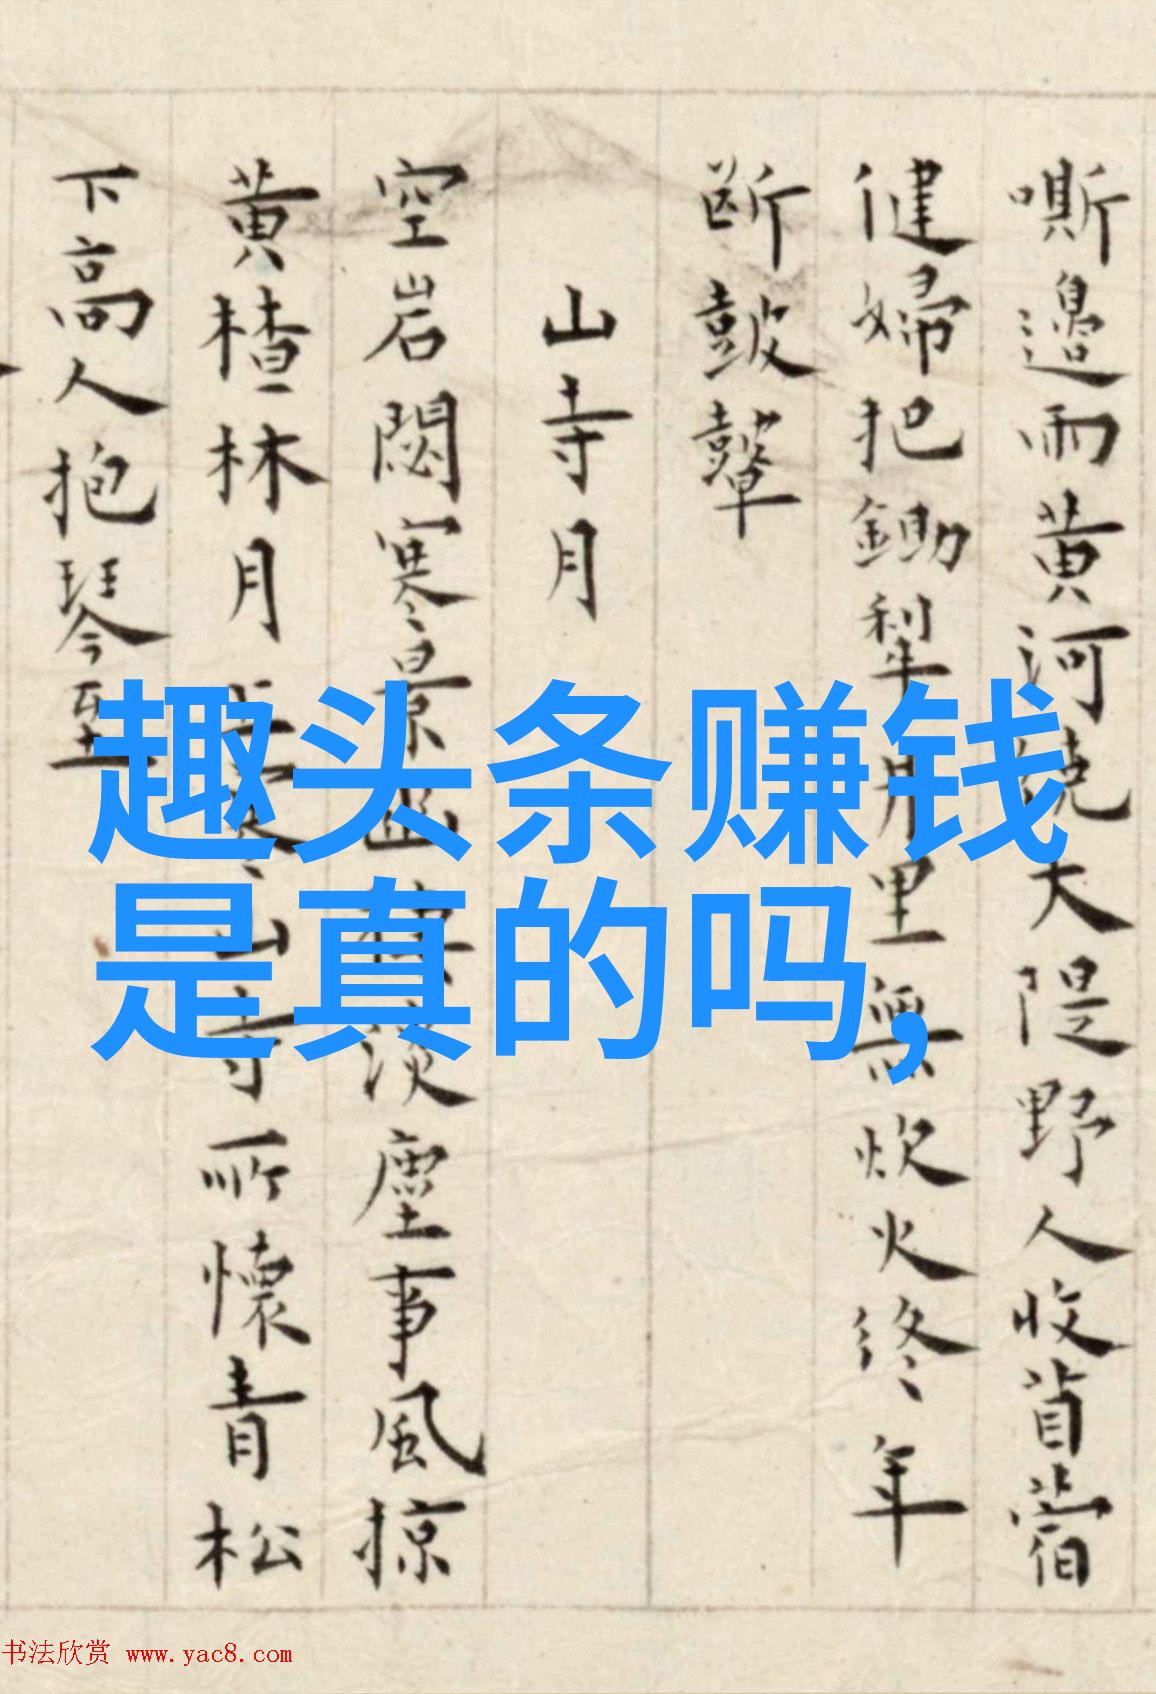 嘶邊雨黄河繞大隄野人收苜蓿
健婦把鋤犁里無炊火終年
断鼓鼙
山寺月
空岩閟寒景幽淡塵事風掠
黄楂林月上寒山寺所懷青松
下高人抱琴至
趣头条赚钱
是真的吗,
书法欣赏 www.yac8.com